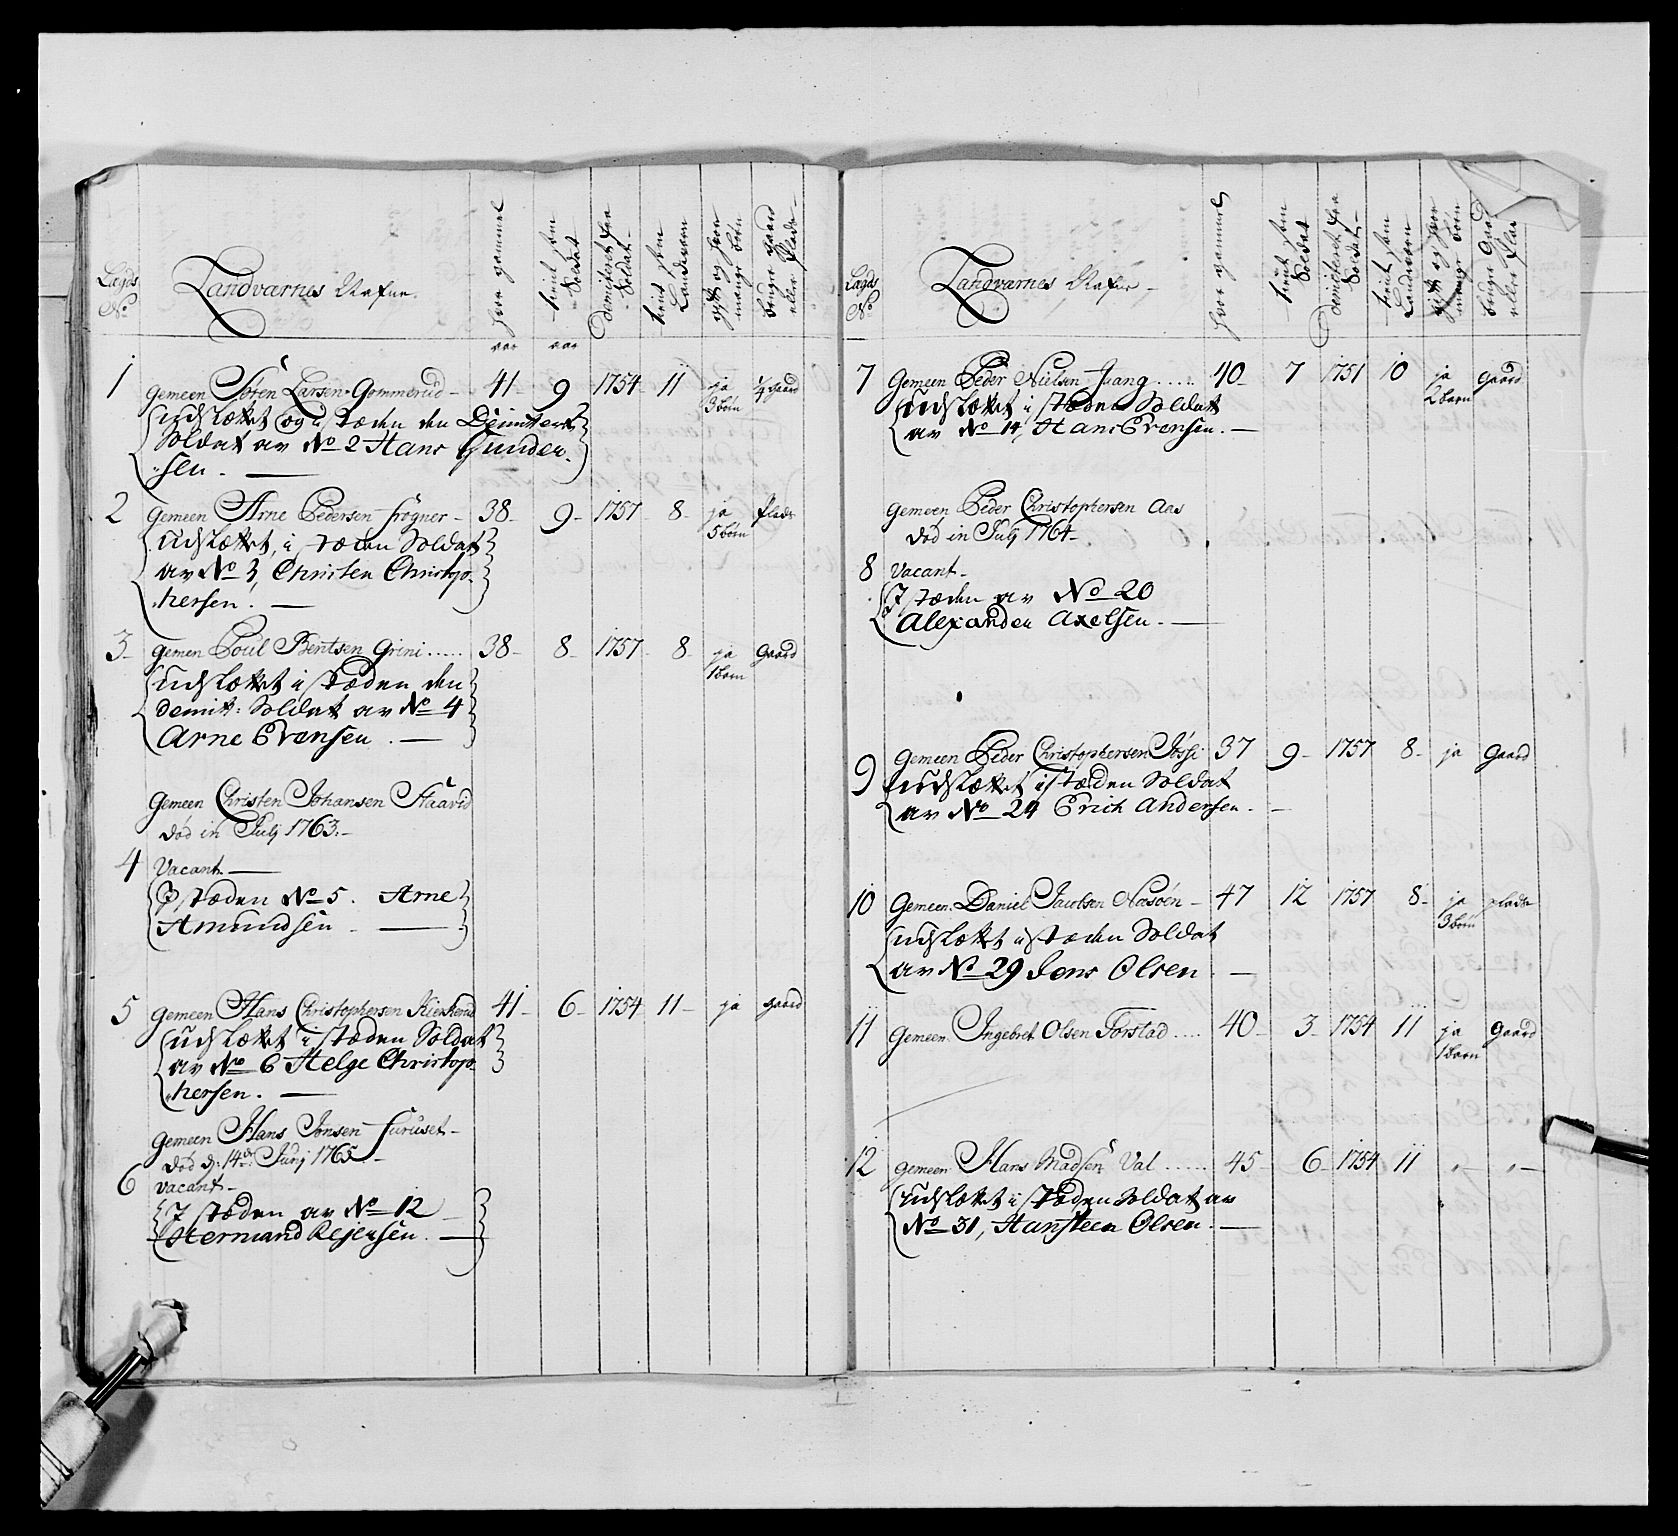 Lægds No
Landværnes Nafne.
hvor gammel
tient som Soldat
Dimiteret fra Soldat
tient som Landværn
gift og hvor mange børn
bruger gaard eller Plads
1 Gemeen Søren Larsen Gommerud - 41 - 9 1754 - 11 ja ¼ gaard
3 børn
udslættet og i stæden den Dimiterte
Soldat av No 2 Hans Gunder
sen. -
2 Gemeen Arne Pedersen Frogner - 38 - 9 - 1757 - 8 - ja Plads
5 børn
udslættet, i stæden Soldat
av No 3, Christen Christop
hersen. -
3 Gemeen Poul Bentsen Grini ..... 38 - 8 - 1757 - 8 - ja Gaard
1 barn
udslættet i stæden den
demit: Soldat av No 4
Arne Evensen. -
Gemeen Christen Johansen Haavid
død in July 1763. -
4 Vacant -
I stæden No 5. Arne
Amundsen. -
5 Gemeen Hans Christophersen Kierkerud 41 - 6 - 1754 - 11 - ja gaard
udslættet i stæden Soldat
av No 6 Helge Christop
hersen. -
Gemeen Hans Jonsen Furuset -
død d: 14de Junj 1765 -
6 Vacant -
I stæden av No 12
Hermand Rejersen. -
Lægds No
Landværnes Nafne -
hvor gammel
tient som Soldat
Demiteret fra Soldat
tient som Landværn
gift og hvor mange børn
bruger Gaard eller Plads
7 Gemeen Peder Nielsen Juang ..... 40 - 7 1751 10 ja gaard
2 barn
udslættet i stæden Soldat
av No 14, Hans Evensen. -
Gemeen Peder Christophersen Aas
død in Julj 1764 -
8 Vacant -
I stæden av No 20
Alexander Axelsen. -
9 Gemeen Peder Christophersen 37 9 - 1757 8 - ja Gaard
udslættet i stæden Soldat
av No 24 Erich Andersen. -
10 Gemeen Daniel Jacobsen - 47 12 1757 8 - ja plads
3 børn
udslættet i stæden Soldat
av No 29 Jens Olsen. -
11 Gemeen Ingebret Olsen Torstad .... 40 - 3 - 1754 11 ja Gaard
1 barn
12 Gemeen Hans Madsen Val ...... 45 - 6 - 1754 11 " - " -
udslættet i stæden Soldat av
No 31, Hansteen Olsen. -